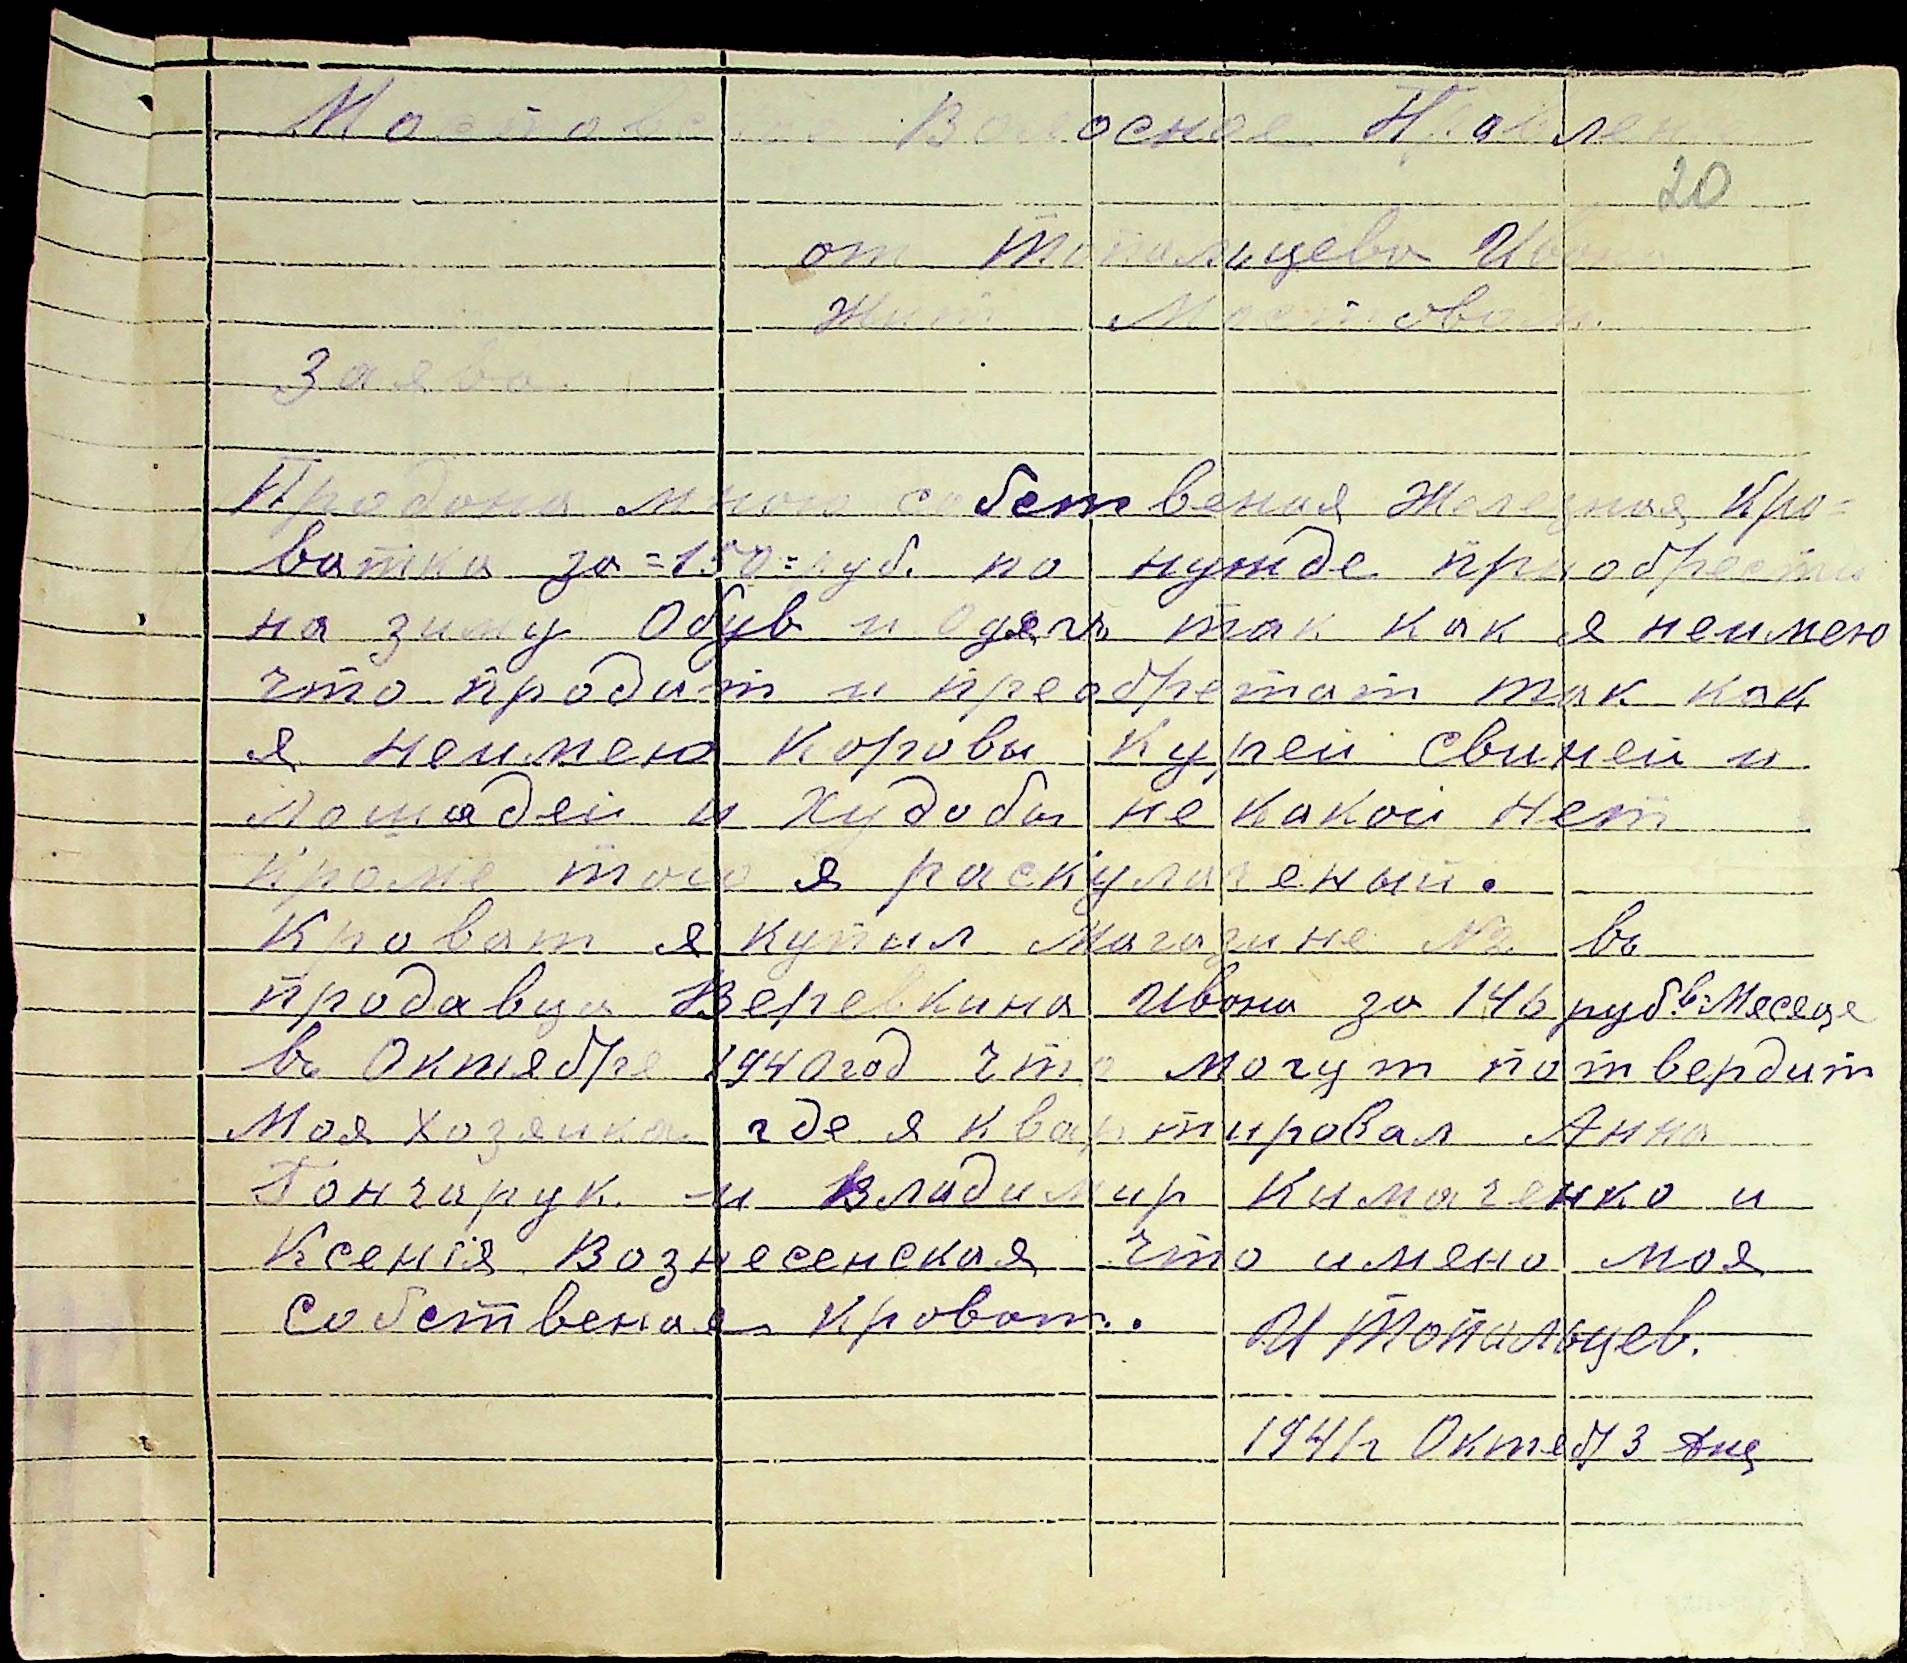 Мостовское Волосное Правлени
20
от Топальцева Ивана
Жит Мостовом
Заява
Продона мною собственая Железная Кро=
ватка за =150= руб. по нужде приобрести
на зиму Обув и Одягъ так как я неимею
что продат и преобретат так как
я неимею Коровы Курей Свиней и
Лошадей и Худобы не какой Нет
Кроме того я раскулаченый.
Кроват я купил Магазине №2 въ
продавца Веревкина Ивона за 146 руб. в=Месеце
въ Октябре 1940 год что могут потвердит
Моя хозяика где я квартировал Анна
Гончарук и Владимир Кимаченко и
Ксенія Вознесенская что имено моя
Собственая Кроват.
И Топальцев.
1941 г Октяб 3 дня